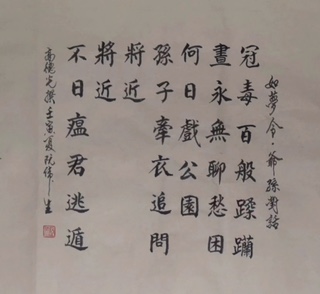 如夢令·爺孫對話
冠毒百般蹂躪
晝永無聊愁困
何日戲公園
孫子牽衣追問
將近
將近
不日瘟君逃遁
壬寅夏阮偉生